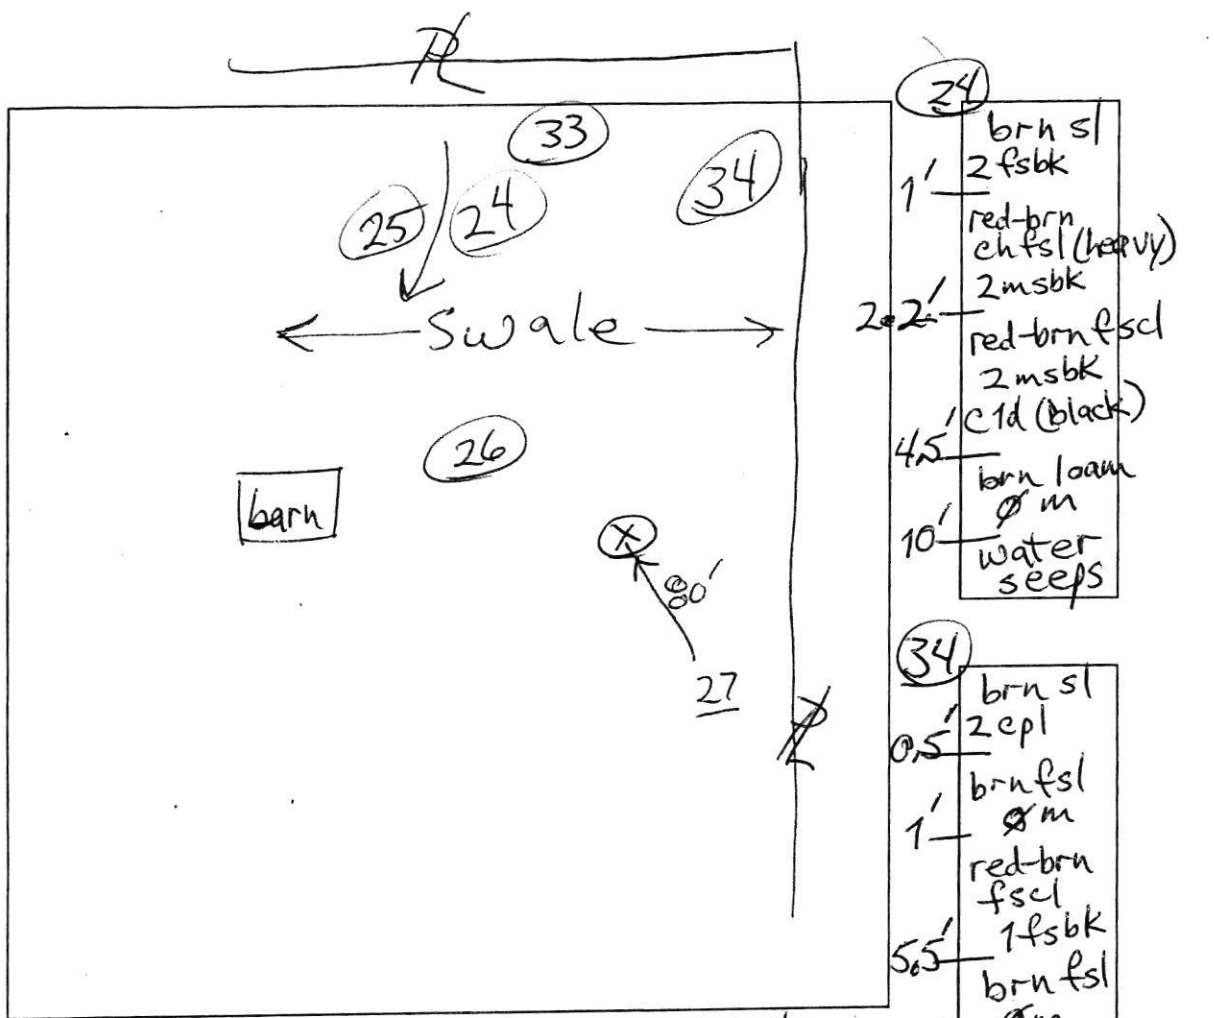 PL
33
34
25
24
Swale
26
barn
X
80'
27
PL
24
brn sl
2 fsbk
1'
red-brn
chfsl (heavy)
2 msbk
2.2'
red-brn fscl
2 msbk
c1d (black)
4.5'
brn loam
Ø m
10'
water
seeps
34
brn sl
2 cpl
0.5'
brn fsl
Ø m
1'
red-brn
fscl
1 fsbk
5.5'
brn fsl
Ø m